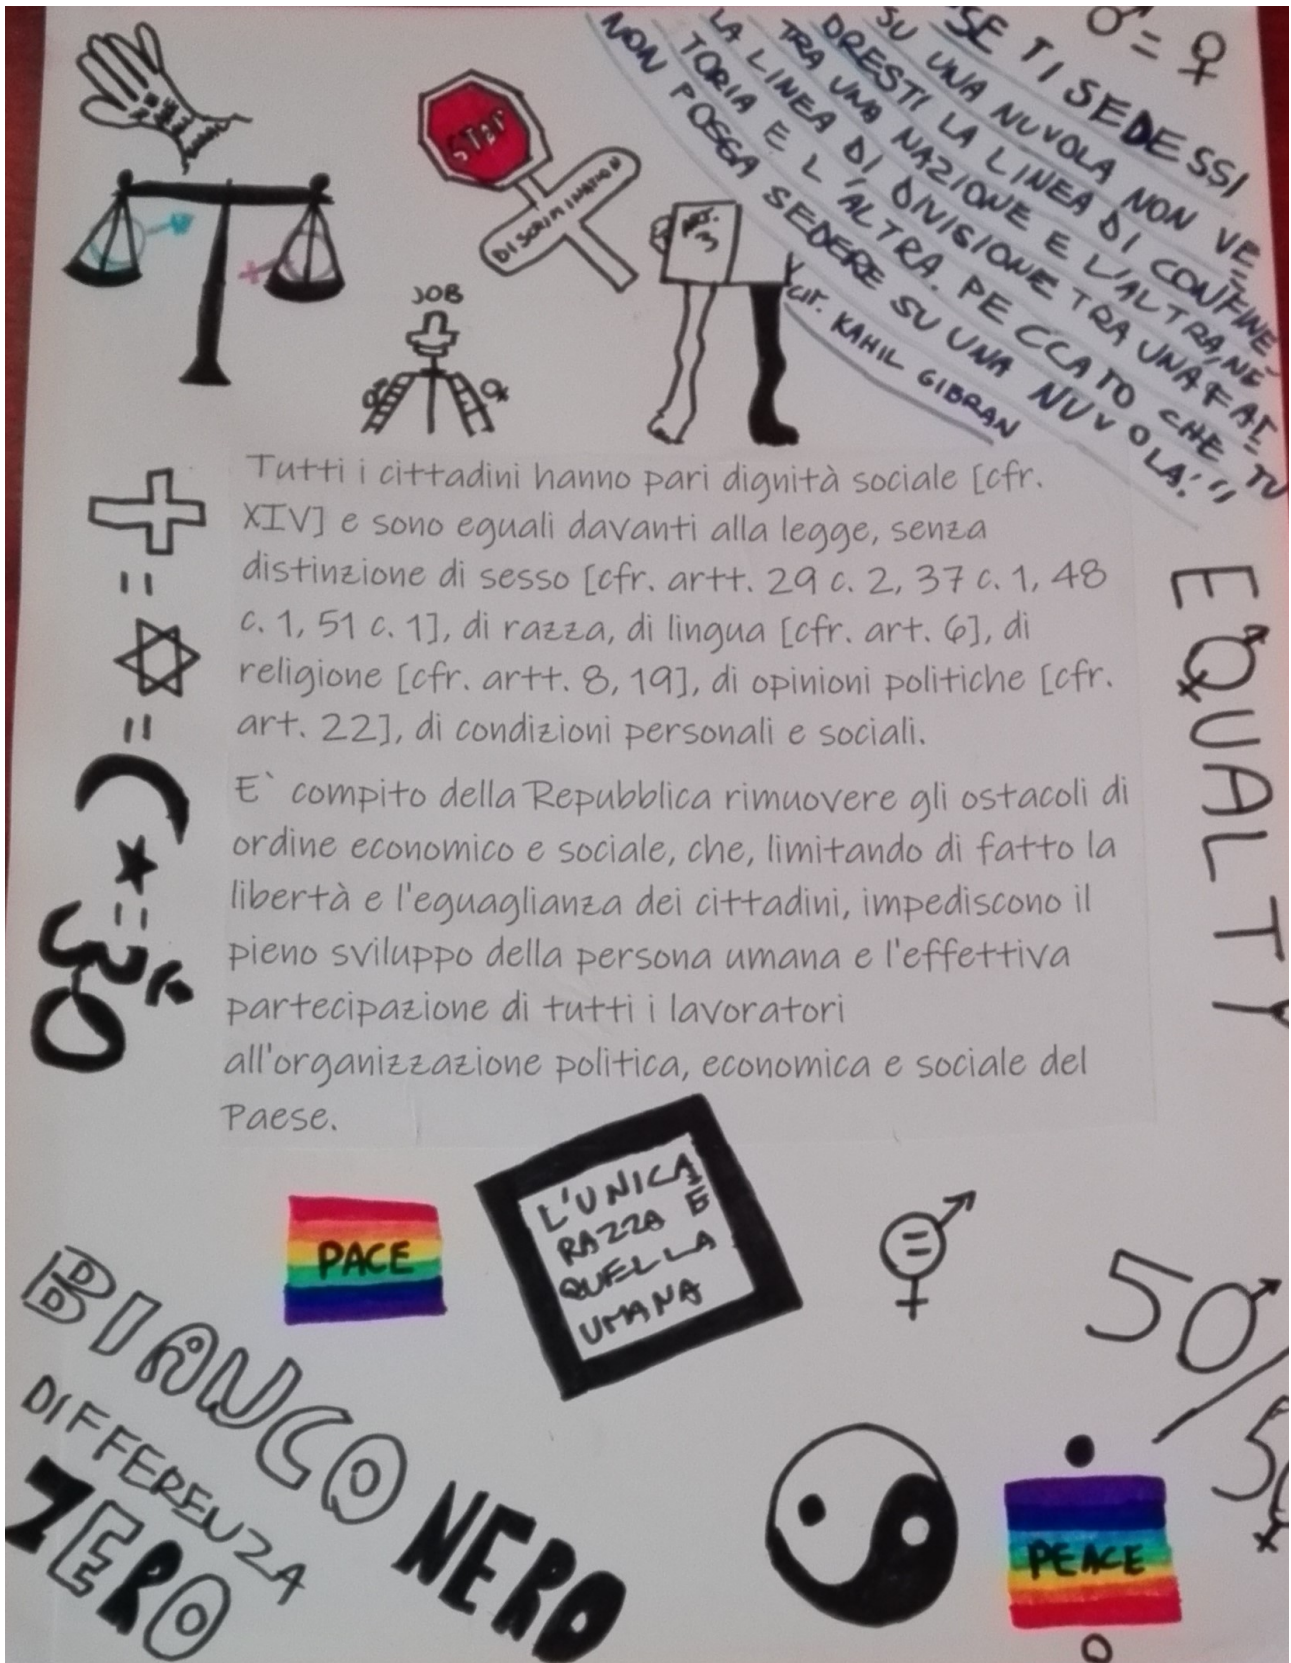 ♂ = ♀
"SE TI SEDESSI
SU UNA NUVOLA NON VE=
DRESTI LA LINEA DI CONFINE
TRA UNA NAZIONE E L'ALTRA, NÉ
LA LINEA DI DIVISIONE TRA UNA FAT=
TORIA E L'ALTRA. PECCATO CHE TU
NON POSSA SEDERE SU UNA NUVOLA."
cit. KAHIL GIBRAN
STOP
DISCRIMINATION
ART.
3
JOB
Tutti i cittadini hanno pari dignità sociale [cfr.
XIV] e sono eguali davanti alla legge, senza
distinzione di sesso [cfr. artt. 29 c. 2, 37 c. 1, 48
c. 1, 51 c. 1], di razza, di lingua [cfr. art. 6], di
religione [cfr. artt. 8, 19], di opinioni politiche [cfr.
art. 22], di condizioni personali e sociali.
E` compito della Repubblica rimuovere gli ostacoli di
ordine economico e sociale, che, limitando di fatto la
libertà e l'eguaglianza dei cittadini, impediscono il
pieno sviluppo della persona umana e l'effettiva
partecipazione di tutti i lavoratori
all'organizzazione politica, economica e sociale del
Paese.
EQUALTY
PACE
L'UNICA
RAZZA È
QUELLA
UMANA
50/50
BIANCO NERO
DIFFERENZA
ZERO
PEACE